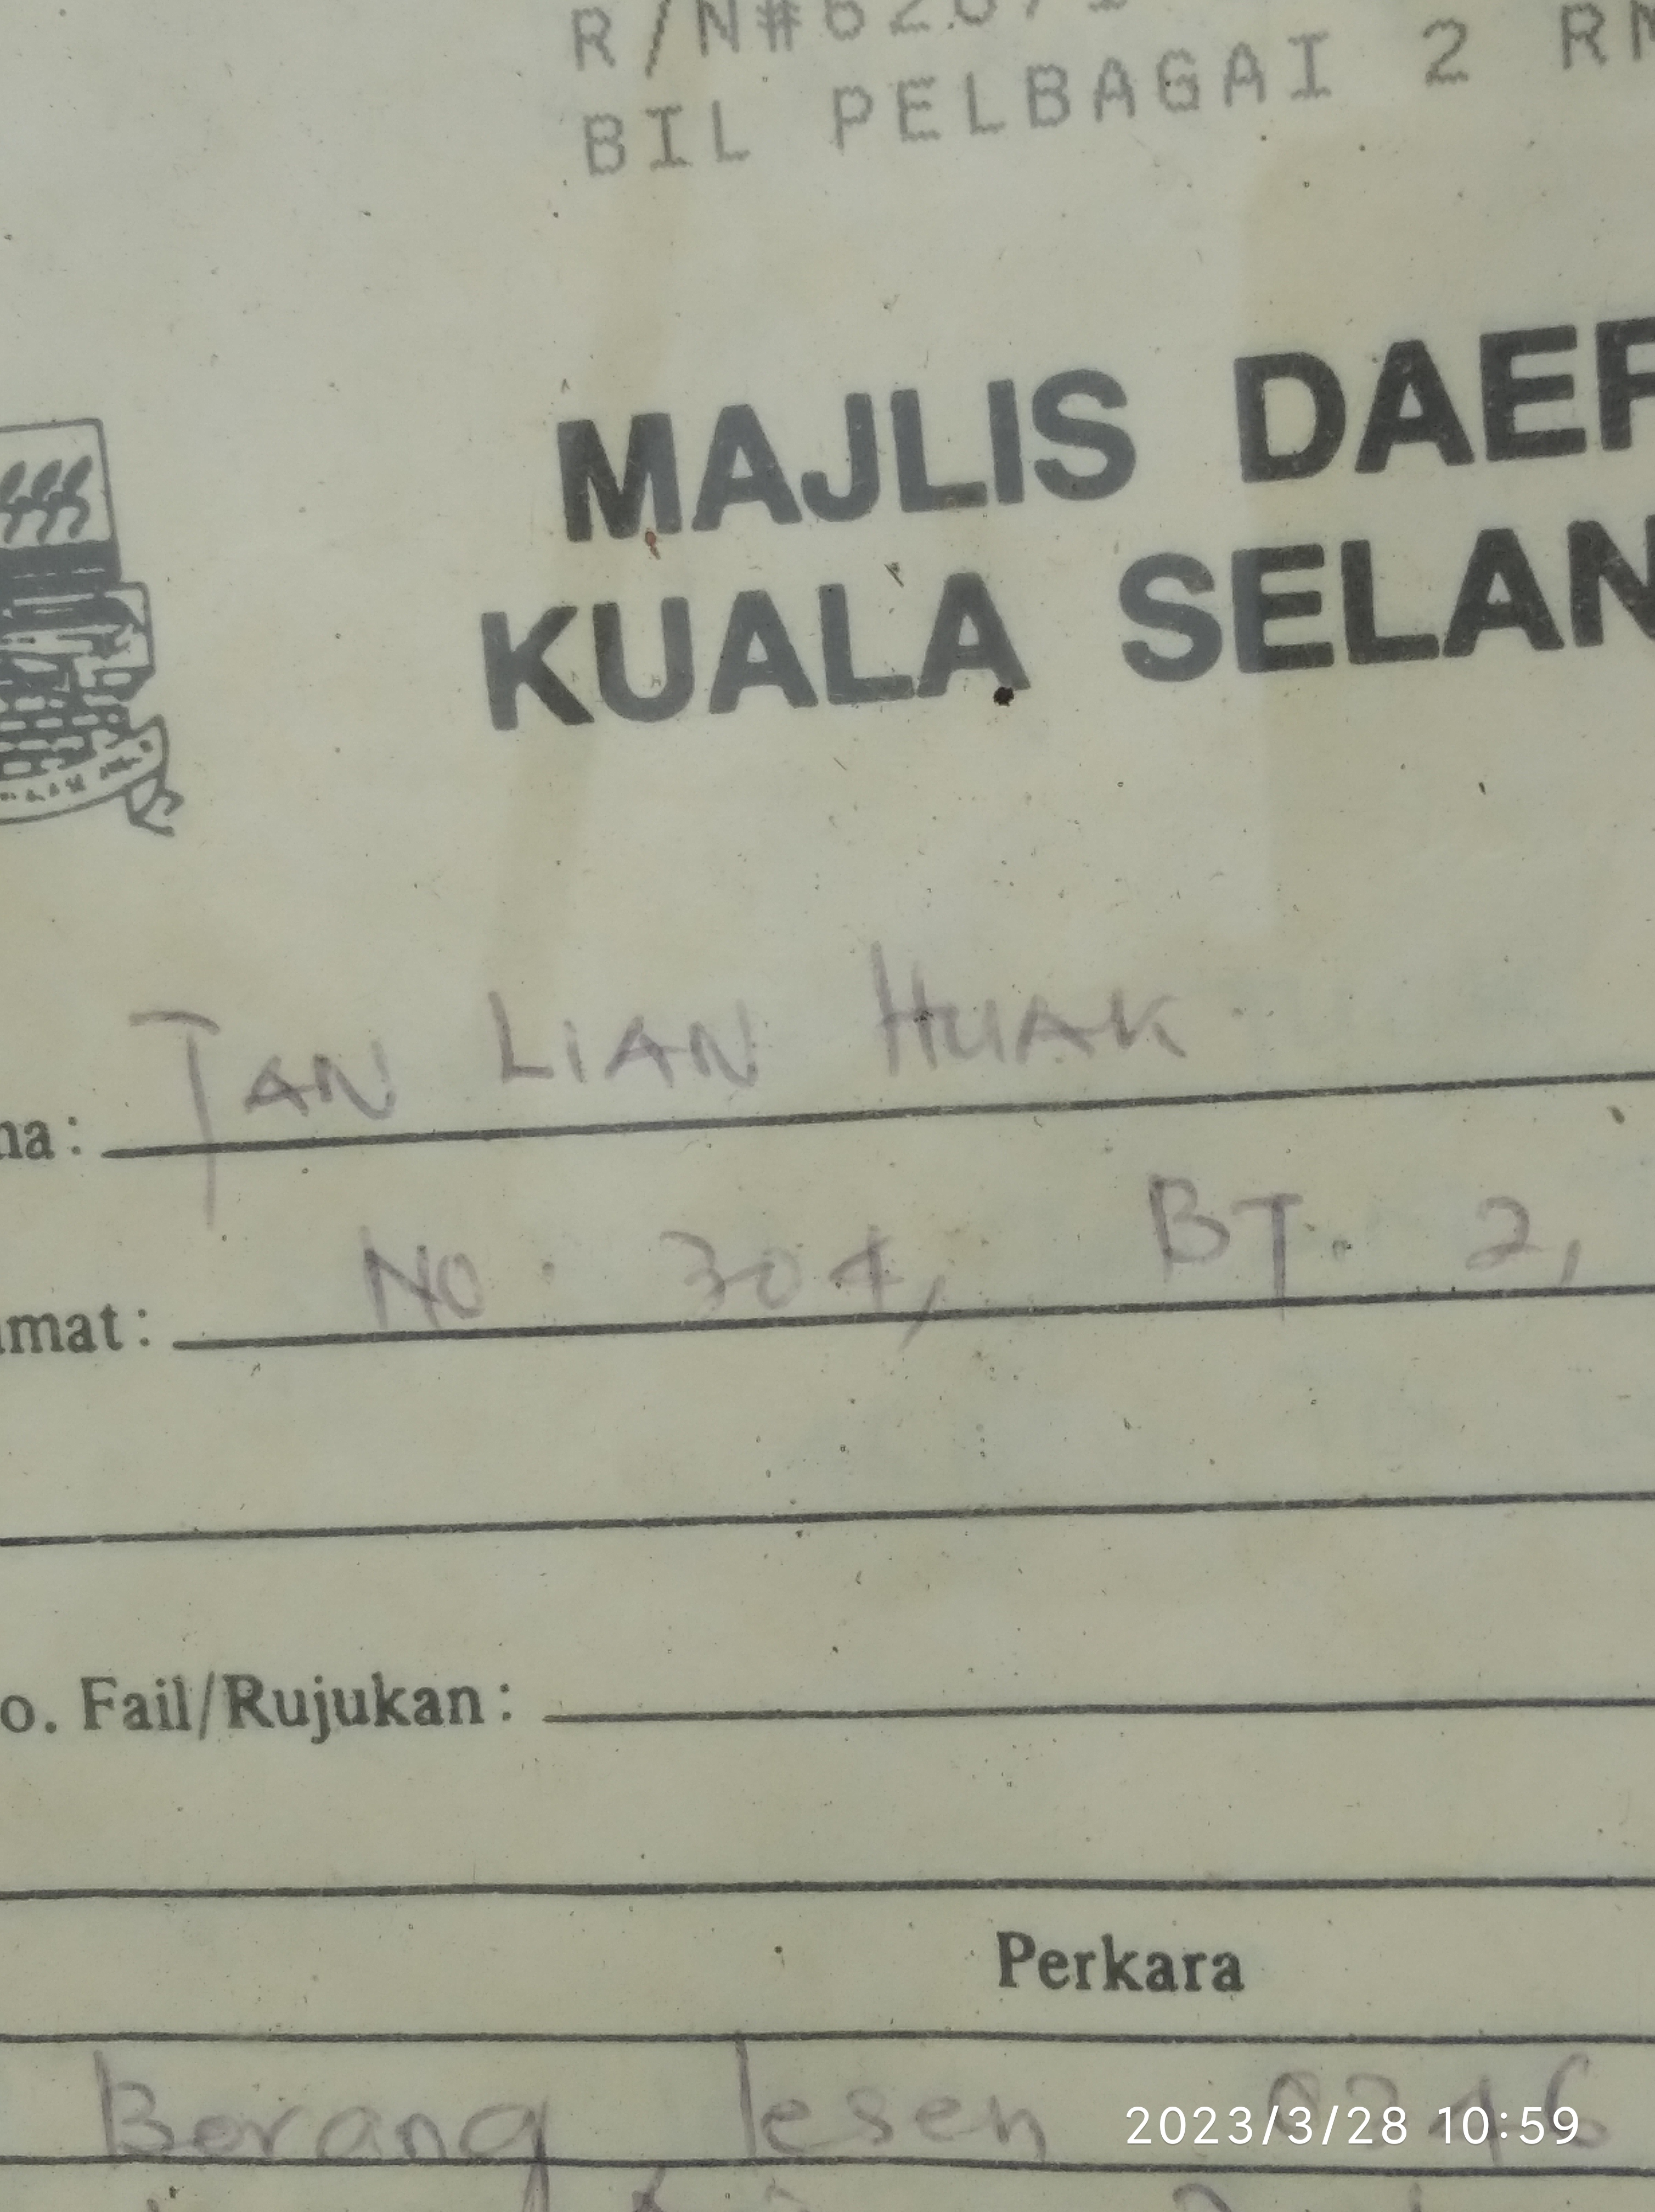 BIL PELBAGAI 2
MAJLIS DAER
KUALA SELAN
na: TAN LIAN HUAK
amat: NO. 304, BT. 2,
o. Fail/Rujukan:
Perkara
Borang lesen
2023/3/28 10:59